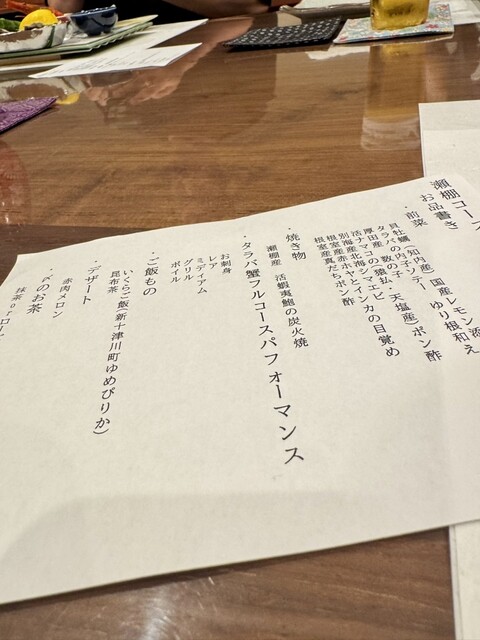 瀬棚コース
お品書き
・前菜
貝牡蠣（知内産） 国産レモン添え
タラバの内子ンデー ゆり根和え
タラバの数の子
厚田産
活ナマコの（猿払、天塩産）ポン酢
別海産北海シマエビ
根室産赤ホヤとインカの目覚め
根室産真だちポン酢
・焼き物
瀬棚産 活蝦夷鮑の炭火焼
・タラバ蟹フルコースパフォーマンス
お刺身
レア
ミディアム
グリル
ボイル
・ご飯もの
いくらご飯（新十津川町ゆめぴりか）
昆布茶
・デザート
赤肉メロン
・〆のお茶
抹茶orロー